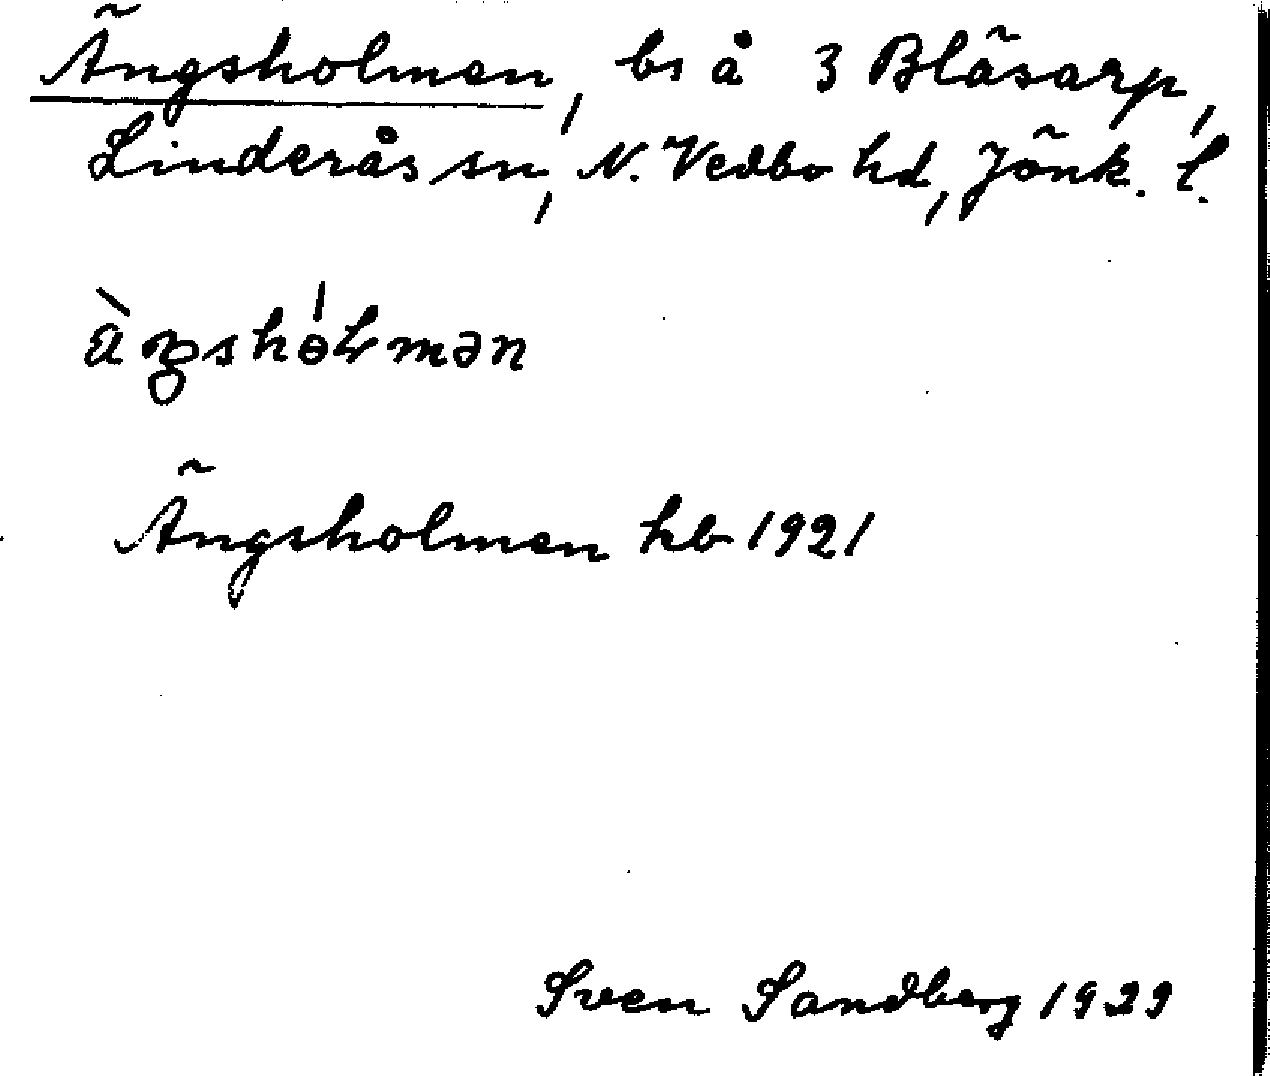 Ängsholmen, bs å 3 Bläsarp,
Linderås sn, N. Vedbo hd, Jönk. l.
Ängsholmen hb 1921
Sven Sandberg 1929